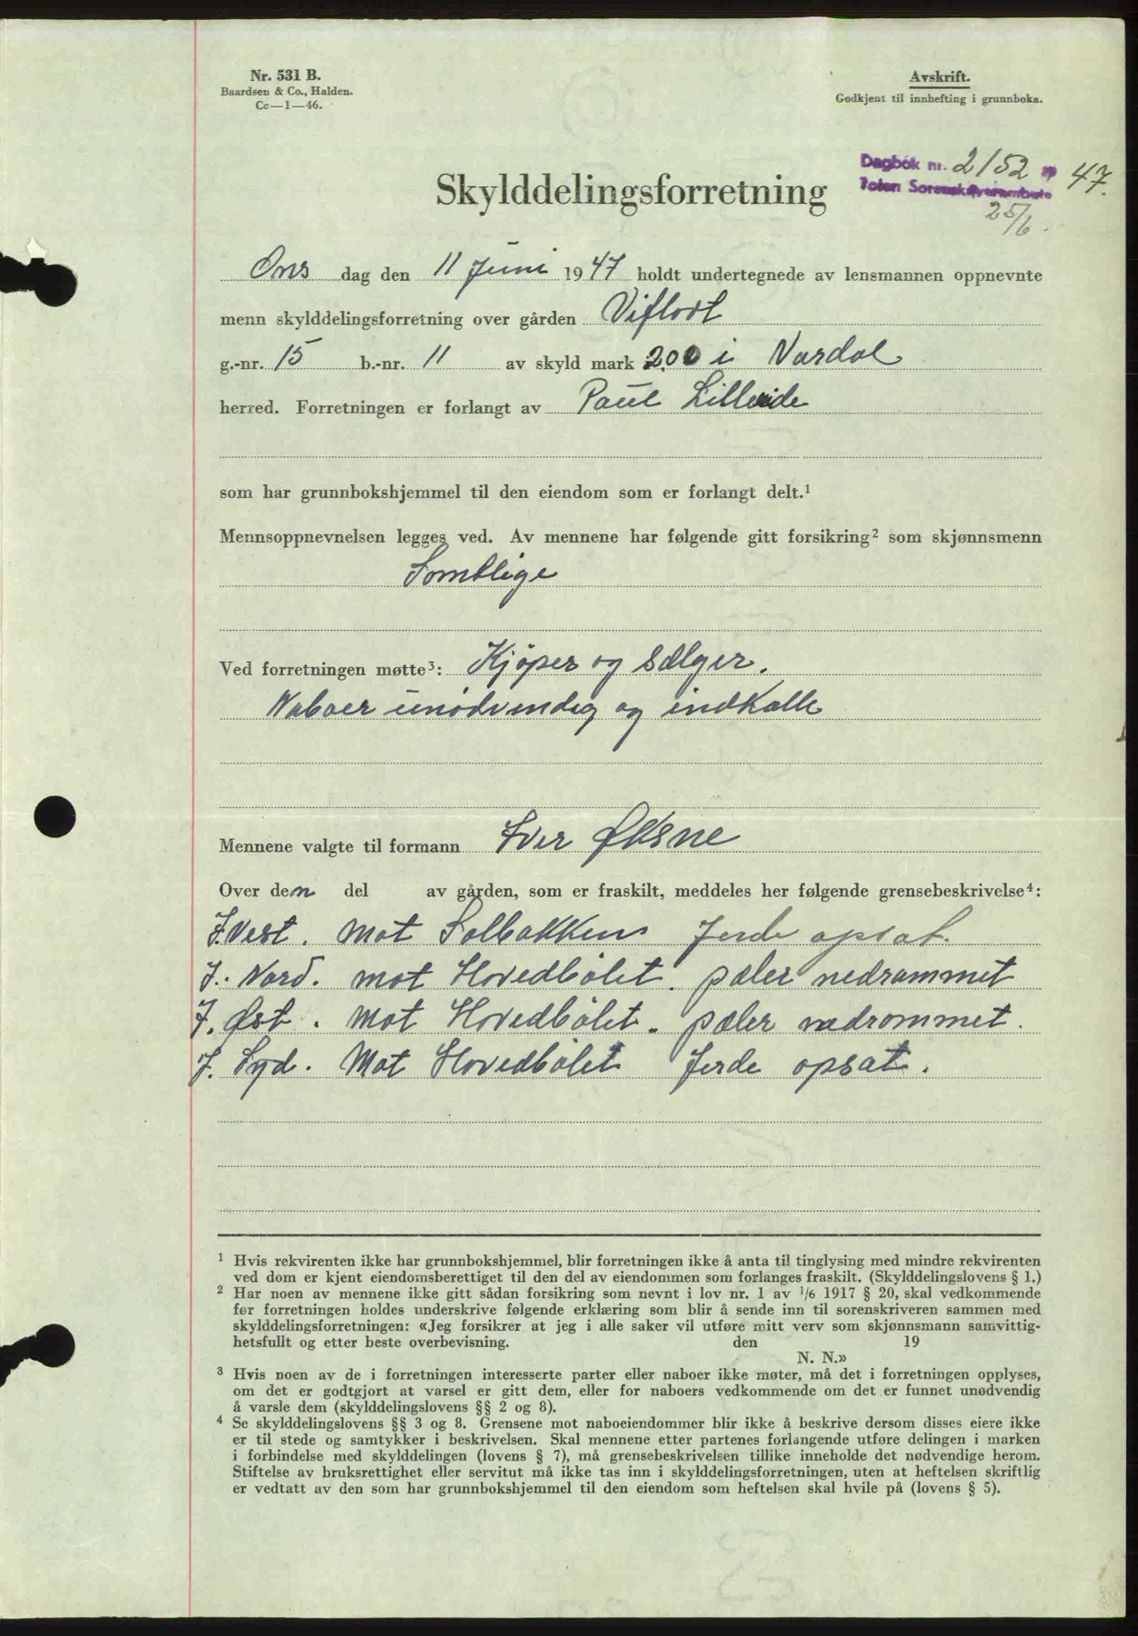 Nr. 531 B.
Baardsen & Co., Halden.
Cc—1—46.
Avskrift.
Godkjent til innhefting i grunnboka.
Dagbok nr. 2152 47.
Toten Sorenskriverembete
25/6.
Skylddelingsforretning
Ons dag den 11 Juni 1947 holdt undertegnede av lensmannen oppnevnte
menn skylddelingsforretning over gården Viflodt
g.-nr. 15 b.-nr. 11 av skyld mark 2,00 i Vardal
herred. Forretningen er forlangt av Paul Lilleeide
som har grunnbokshjemmel til den eiendom som er forlangt delt.¹
Mennsoppnevnelsen legges ved. Av mennene har følgende gitt forsikring² som skjønnsmenn
Samtlige
Ved forretningen møtte³: Kjøper og Sælger.
Naboer unødvendig og indkalle
Mennene valgte til formann Iver Øksne
Over den del av gården, som er fraskilt, meddeles her følgende grensebeskrivelse⁴:
I. Vest. mot Solbakken Jerde opsat.
I. Nord. mot Hovedbølet. pæler nedrammet
I. Øst. Mot Hovedbølet. pæler nedrammet.
I. Syd. Mot Hovedbølet Jerde opsat.
¹ Hvis rekvirenten ikke har grunnbokshjemmel, blir forretningen ikke å anta til tinglysing med mindre rekvirenten
ved dom er kjent eiendomsberettiget til den del av eiendommen som forlanges fraskilt. (Skylddelingslovens § 1.)
² Har noen av mennene ikke gitt sådan forsikring som nevnt i lov nr. 1 av ¹/6 1917 § 20, skal vedkommende
før forretningen holdes underskrive følgende erklæring som blir å sende inn til sorenskriveren sammen med
skylddelingsforretningen: «Jeg forsikrer at jeg i alle saker vil utføre mitt verv som skjønnsmann samvittig-
hetsfullt og etter beste overbevisning. den 19
N. N.»
³ Hvis noen av de i forretningen interesserte parter eller naboer ikke møter, må det i forretningen opplyses,
om det er godtgjort at varsel er gitt dem, eller for naboers vedkommende om det er funnet unødvendig
å varsle dem (skylddelingslovens §§ 2 og 8).
⁴ Se skylddelingslovens §§ 3 og 8. Grensene mot naboeiendommer blir ikke å beskrive dersom disses eiere ikke
er til stede og samtykker i beskrivelsen. Skal mennene etter partenes forlangende utføre delingen i marken
i forbindelse med skylddelingen (lovens § 7), må grensebeskrivelsen tillike inneholde det nødvendige herom.
Stiftelse av bruksrettighet eller servitut må ikke tas inn i skylddelingsforretningen, uten at heftelsen skriftlig
er vedtatt av den som har grunnbokshjemmel til den eiendom som heftelsen skal hvile på (lovens § 5).